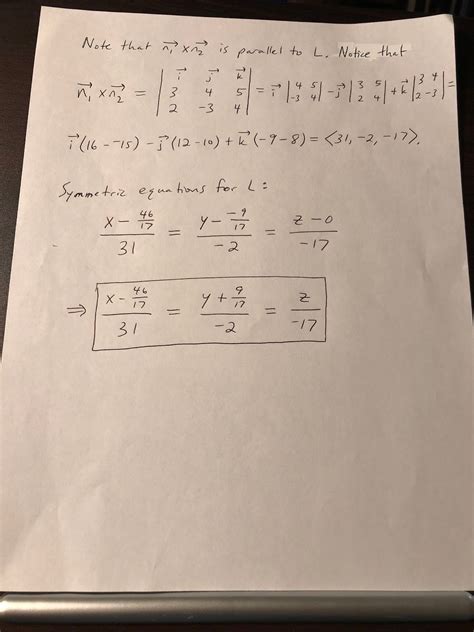 Note that n₁⃗ × n₂⃗ is parallel to L. Notice that
n₁⃗ × n₂⃗ = | i⃗ j⃗ k⃗ ; 3 4 5 ; 2 -3 4 | = i⃗ | 4 5 ; -3 4 | - j⃗ | 3 5 ; 2 4 | + k⃗ | 3 4 ; 2 -3 | =
i⃗(16 - -15) - j⃗(12-10) + k⃗(-9-8) = ⟨31, -2, -17⟩.
Symmetric equations for L:
(x - 46/17)/31 = (y - -9/17)/-2 = (z - 0)/-17
⇒ (x - 46/17)/31 = (y + 9/17)/-2 = z/-17